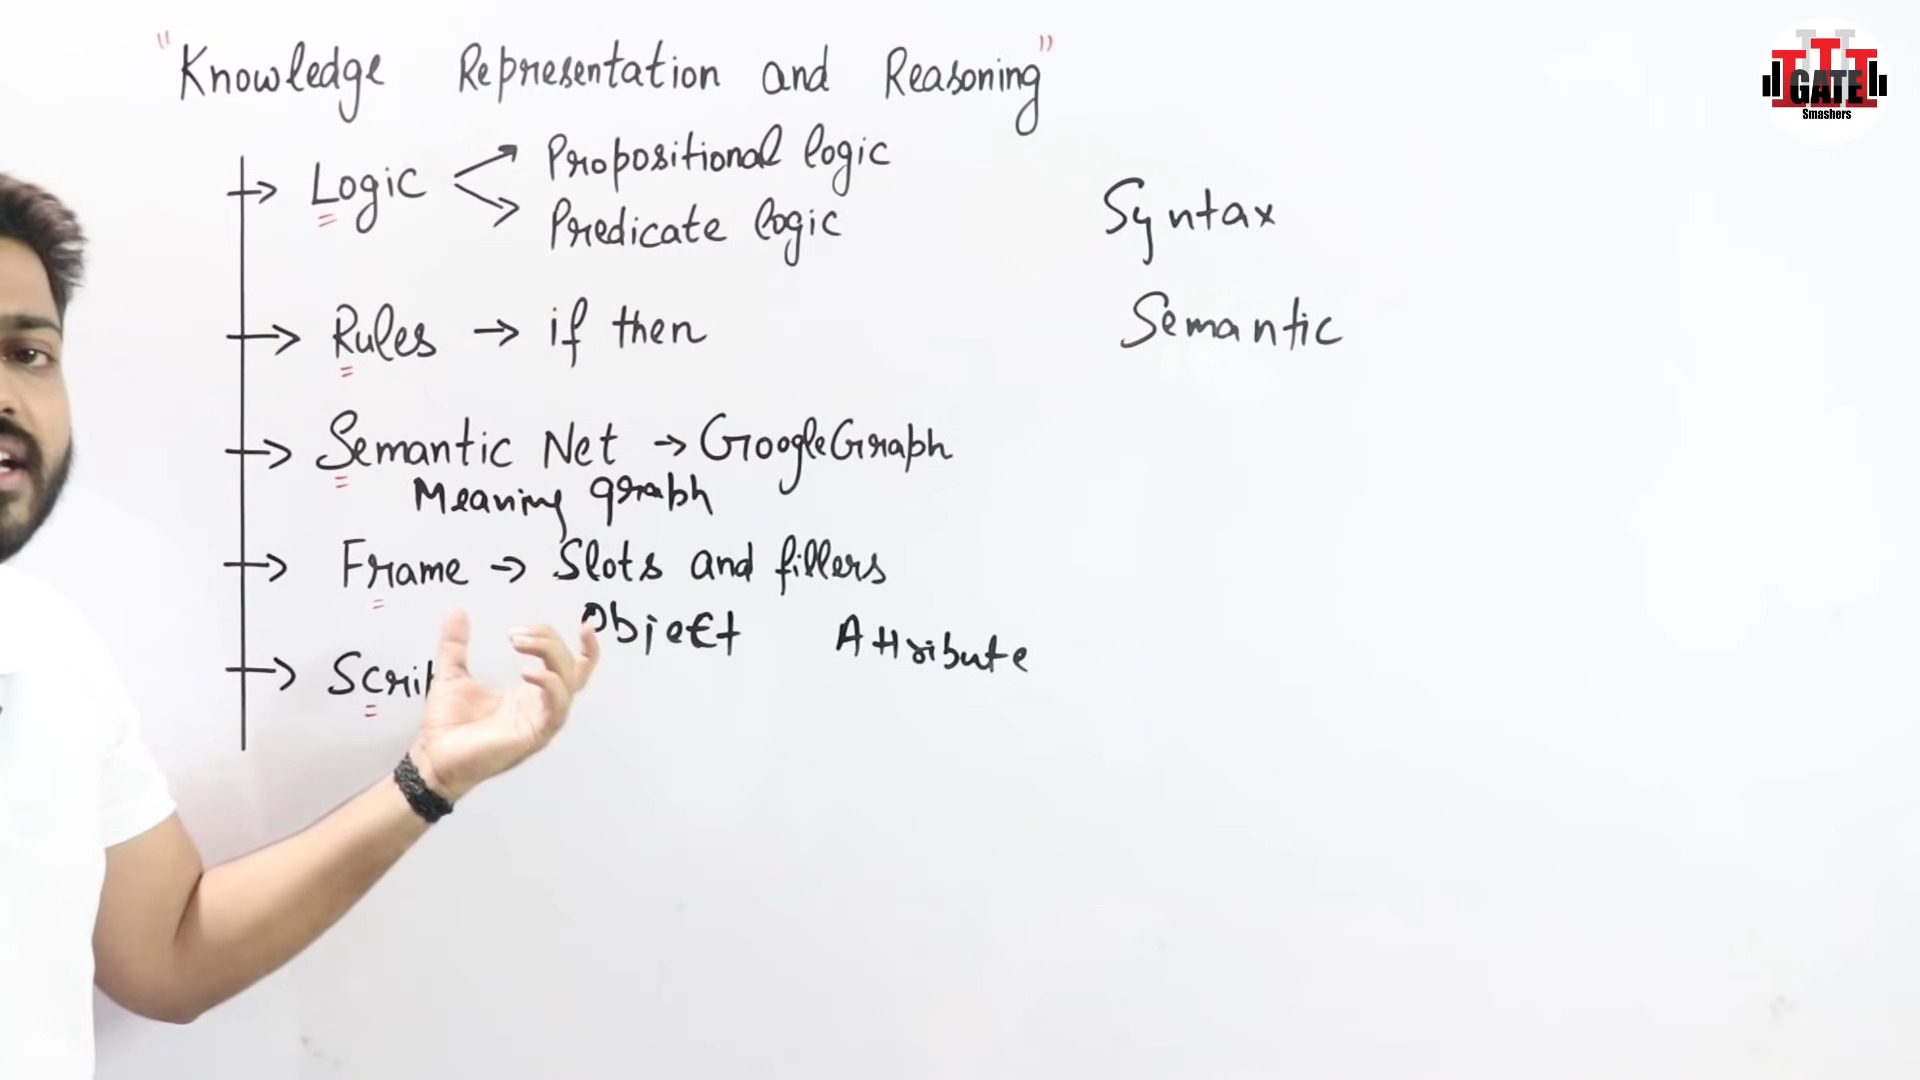 "Knowledge Representation and Reasoning"
→ Logic
Propositional logic
Predicate logic
→ Rules → if then
→ Semantic Net → GoogleGraph
Meaning graph
→ Frame → Slots and fillers
Object Attribute
→ Scri
Syntax
Semantic
GATE
Smashers